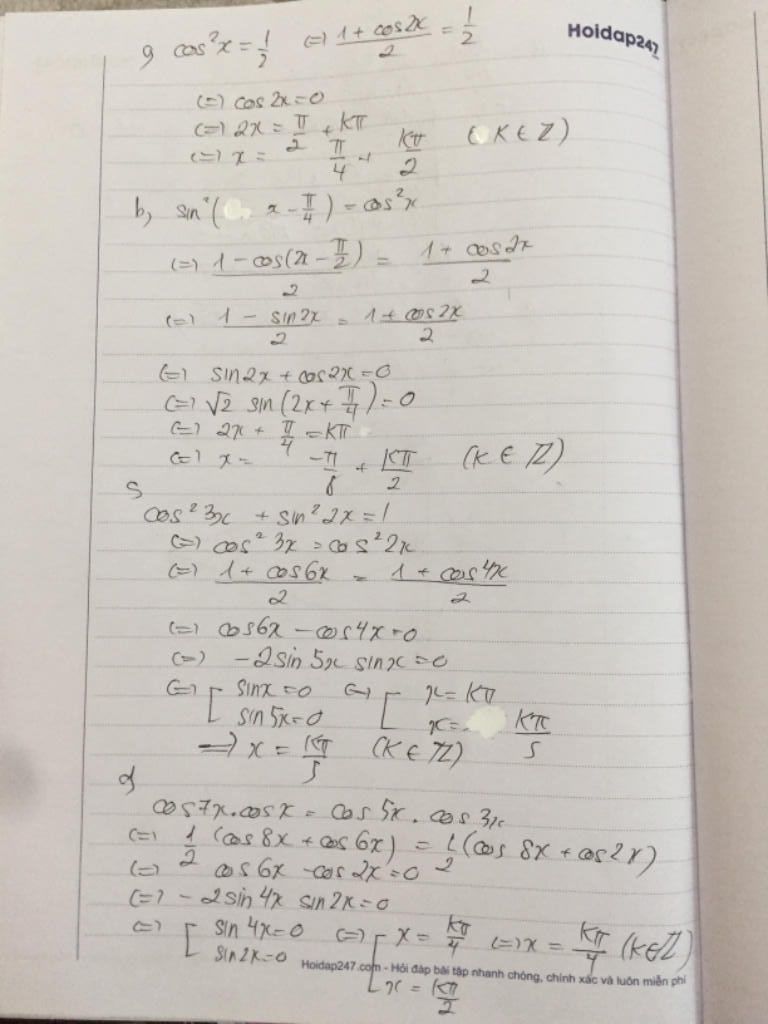 Hoidap247
a, cos²x = 1/2 (=) (1 + cos2x)/2 = 1/2
(=) cos2x=0
(=) 2x = π/2 + Kπ
(=) x = π/4 + Kπ/2 (K ∈ ℤ)
b, sin²(x - π/4) = cos²x
(=) (1 - cos(2x - π/2))/2 = (1 + cos2x)/2
(=) (1 - sin2x)/2 = (1 + cos2x)/2
(=) sin2x + cos2x = 0
(=) √2 sin(2x + π/4) = 0
(=) 2x + π/4 = Kπ
(=) x = -π/8 + Kπ/2 (K ∈ ℤ)
cos²3x + sin²2x = 1
(=) cos²3x = cos²2x
(=) (1 + cos6x)/2 = (1 + cos4x)/2
(=) cos6x - cos4x = 0
(=) -2sin5x sinx = 0
(=) [ sinx = 0 (=) [ x = Kπ
sin5x = 0 x = Kπ/5
=) x = Kπ/5 (K ∈ ℤ)
d,
cos7x.cosx = cos5x.cos3x
(=) 1/2 (cos8x + cos6x) = 1/2 (cos8x + cos2x)
(=) cos6x - cos2x = 0
(=) -2sin4x sin2x = 0
(=) [ sin4x = 0 (=) [ x = Kπ/4 (=) x = Kπ/4 (K∈ℤ)
sin2x = 0 x = Kπ/2
Hoidap247.com - Hỏi đáp bài tập nhanh chóng, chính xác và luôn miễn phí